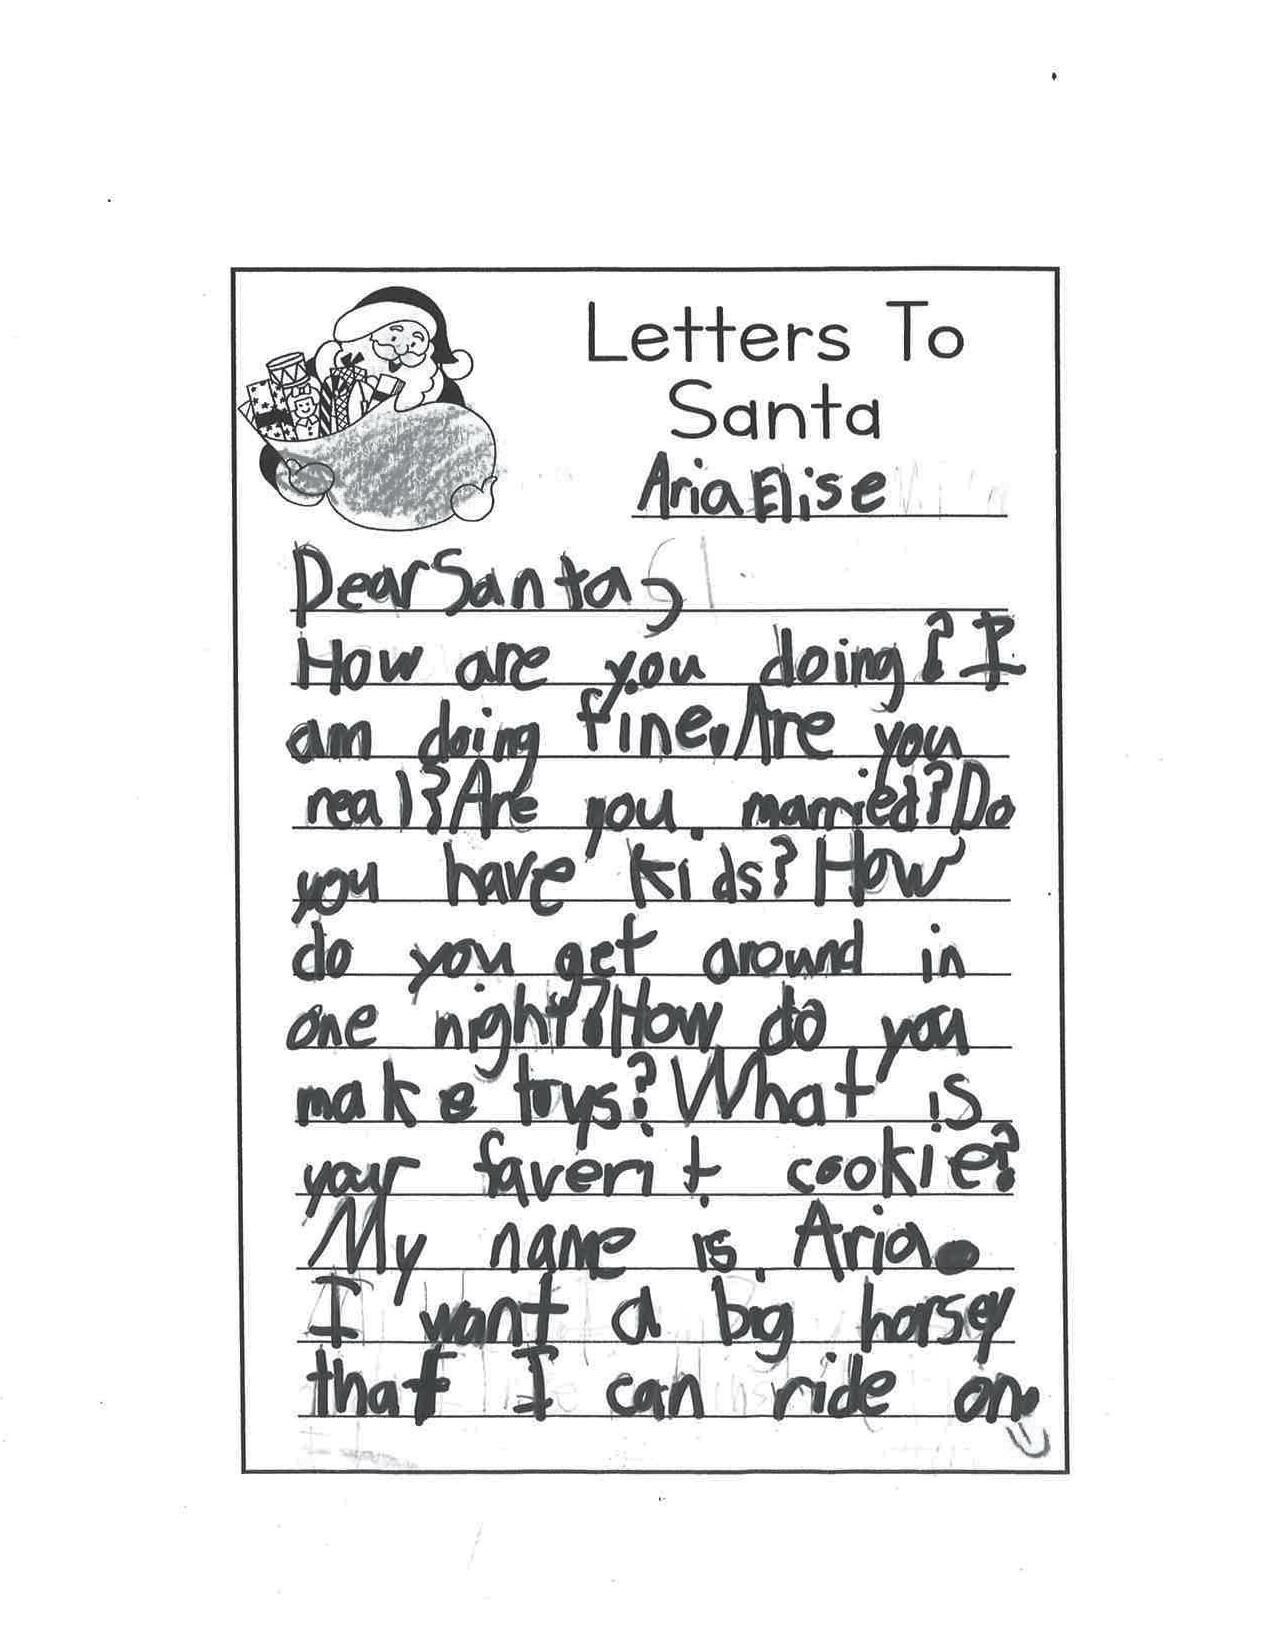 Letters To
Santa
Aria Elise
Dear Santa,
How are you doing? I
am doing fine. Are you
real? Are you married? Do
you have kids? How
do you get around in
one night? How do you
make toys? What is
your faverit cookie?
My name is Aria.
I want a big horsey
that I can ride on.